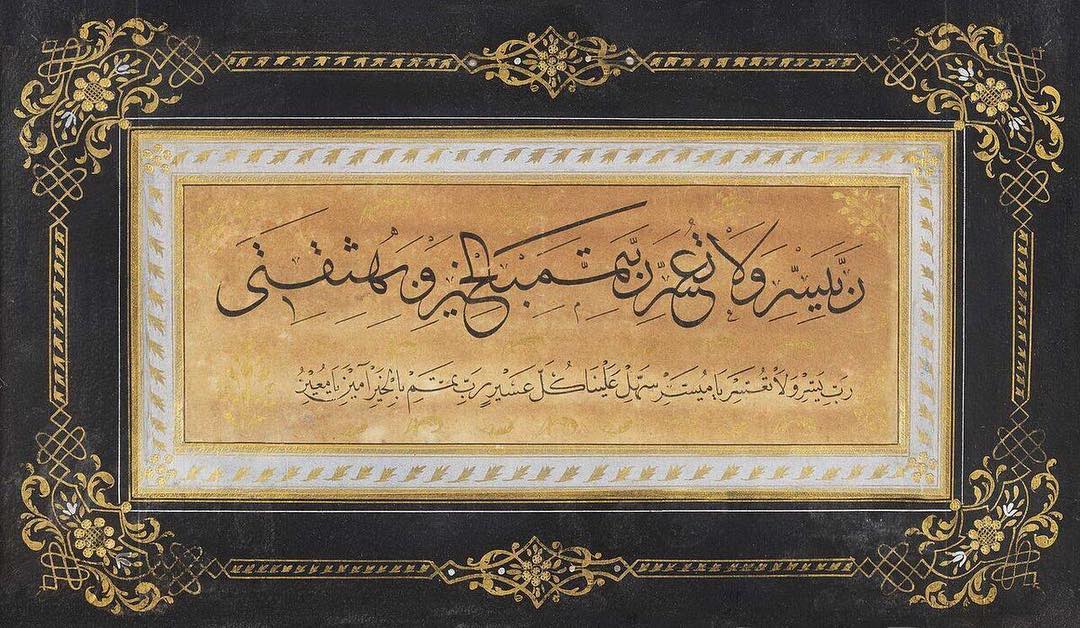 رَبِّ يَسِّرْ وَلَا تُعَسِّرْ رَبِّ تَمِّمْ بِالْخَيْرِ وَبِهِ ثِقَتِي
رَبِّ يَسِّرْ وَلَا تُعَسِّرْ يَا مُيَسِّرْ سَهِّلْ عَلَيْنَا كُلَّ عَسِيْرٍ رَبِّ تَمِّمْ بِالْخَيْرِ آمِيْنَ يَا مُعِيْنُ